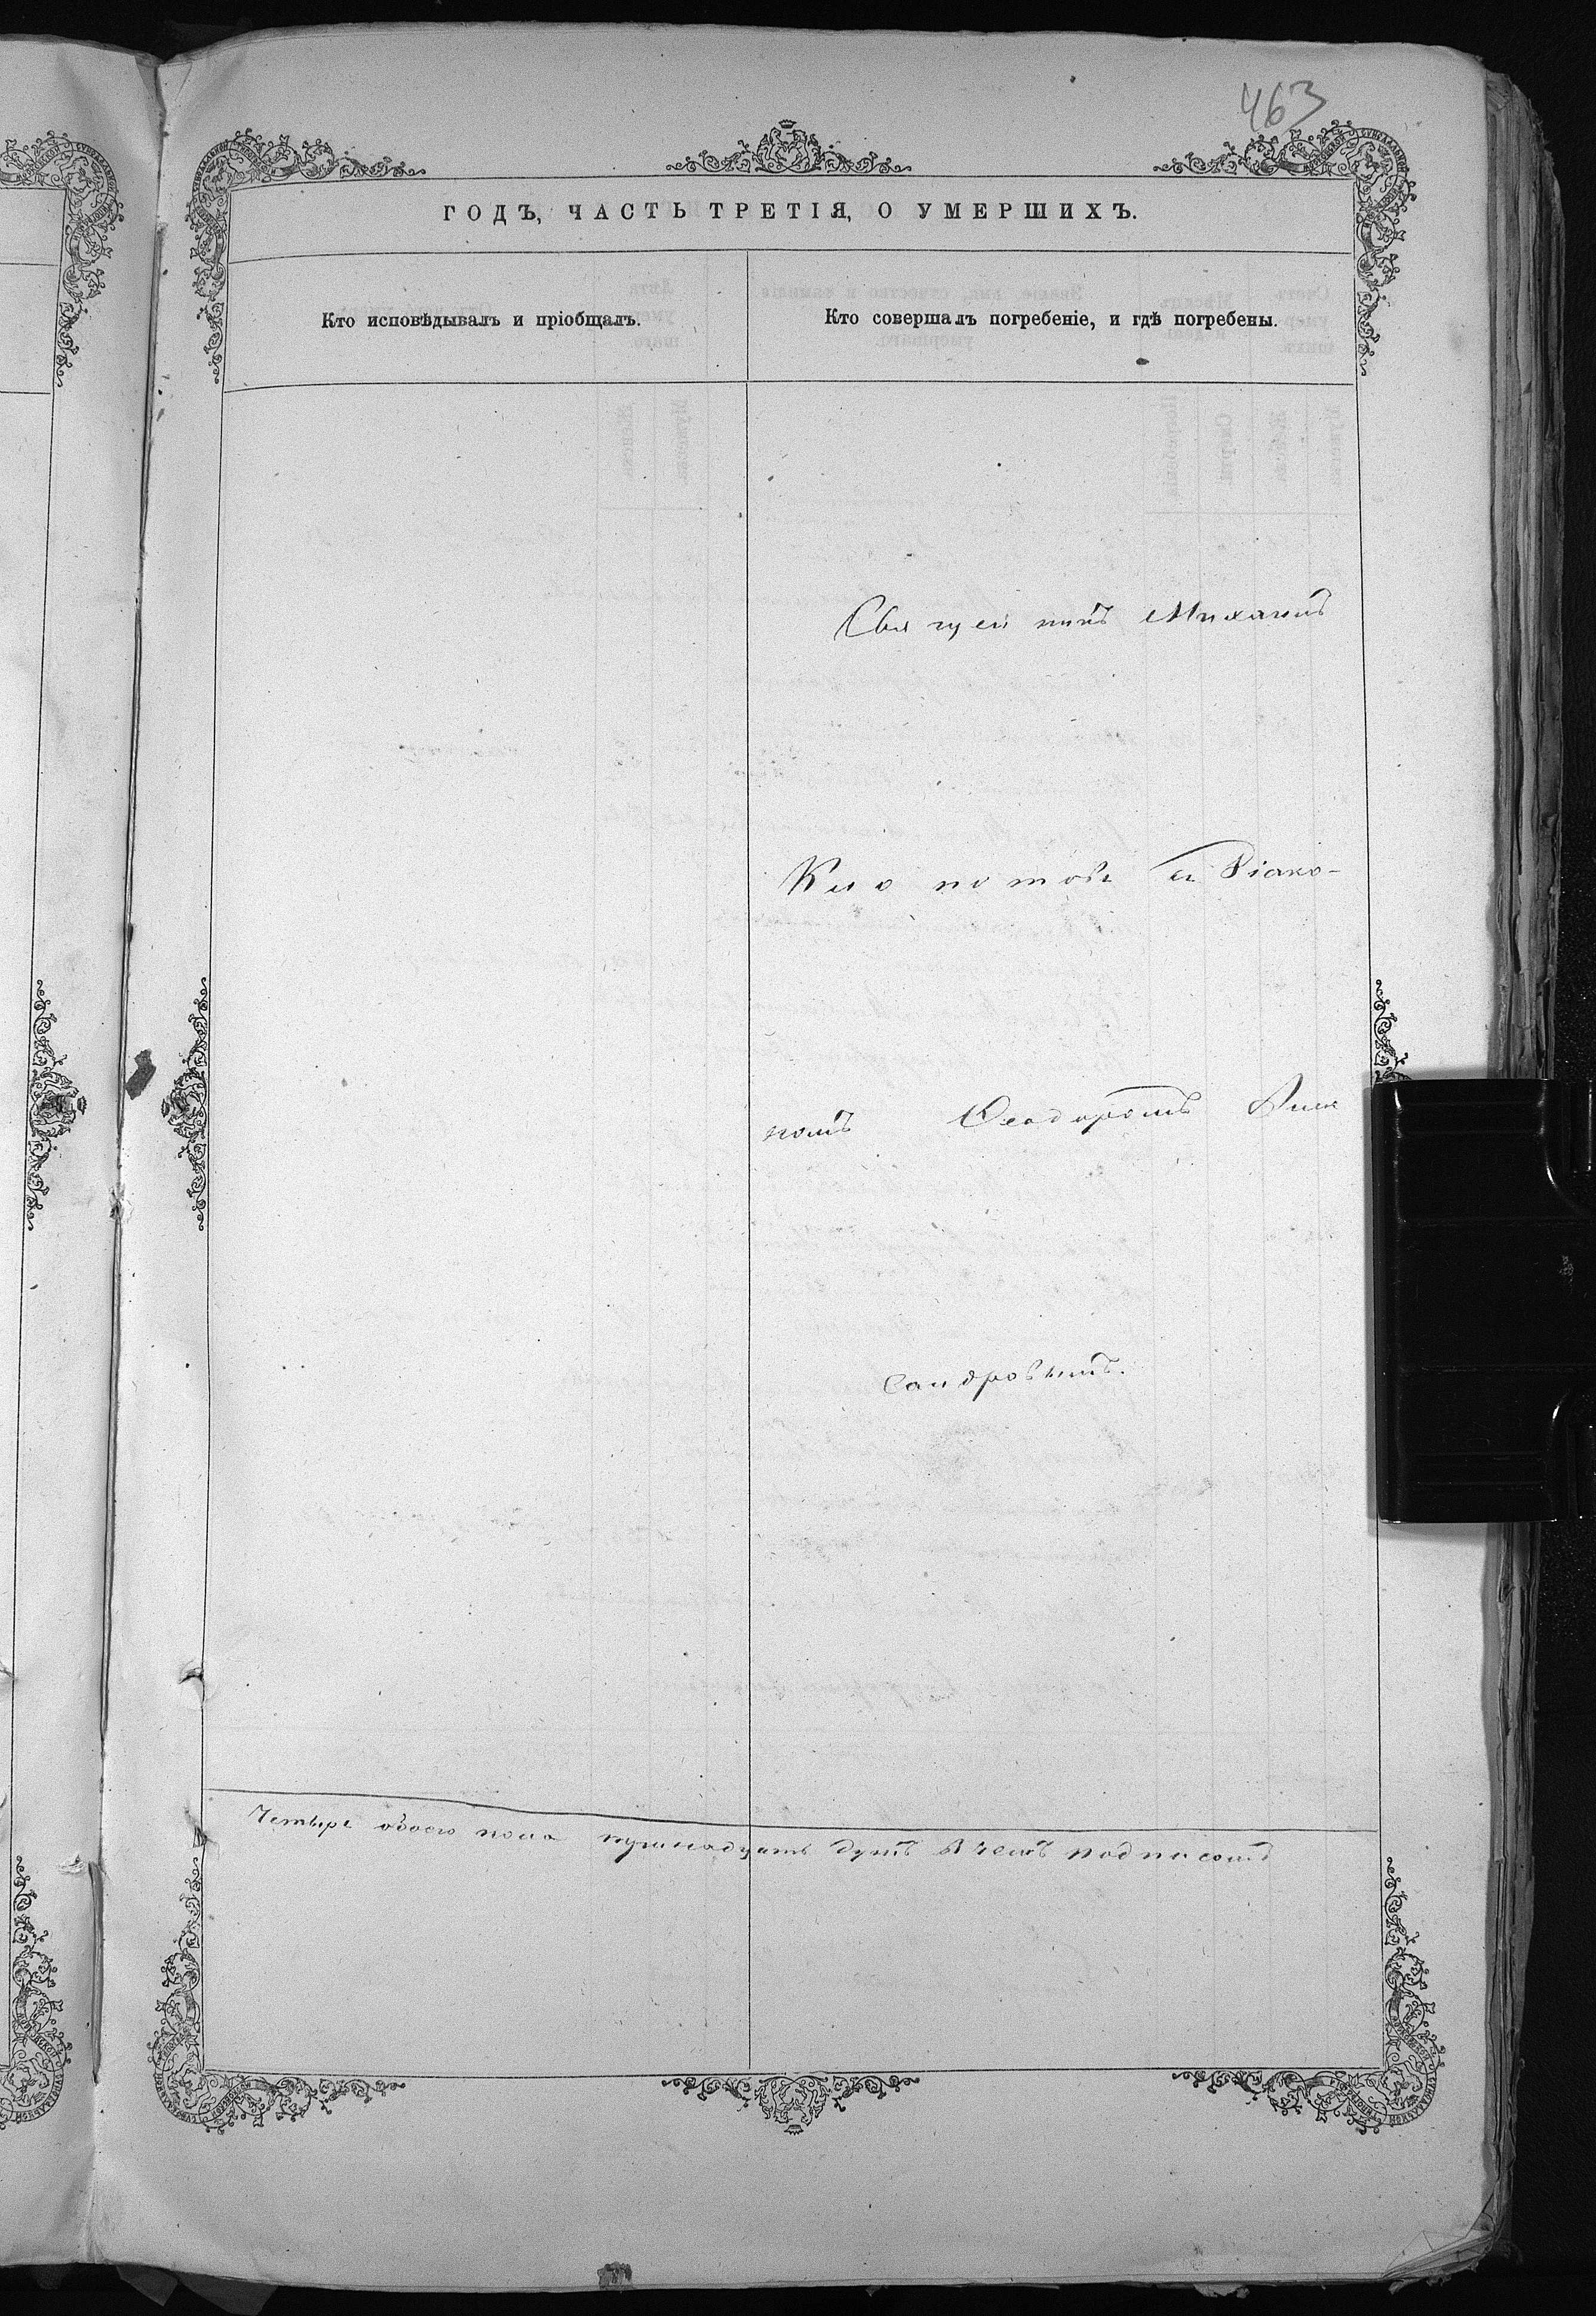 463
ГОДЪ, ЧАСТЬ ТРЕТІЯ, О УМЕРШИХЪ.
Кто исповѣдывалъ и пріобщалъ.
Кто совершалъ погребеніе, и гдѣ погребены.
Священникъ Михаилъ
съ Діако-
номъ Ѳеодоромъ Алек
сандровымъ.
Четыре обоего пола душъ В чемъ подписомъ